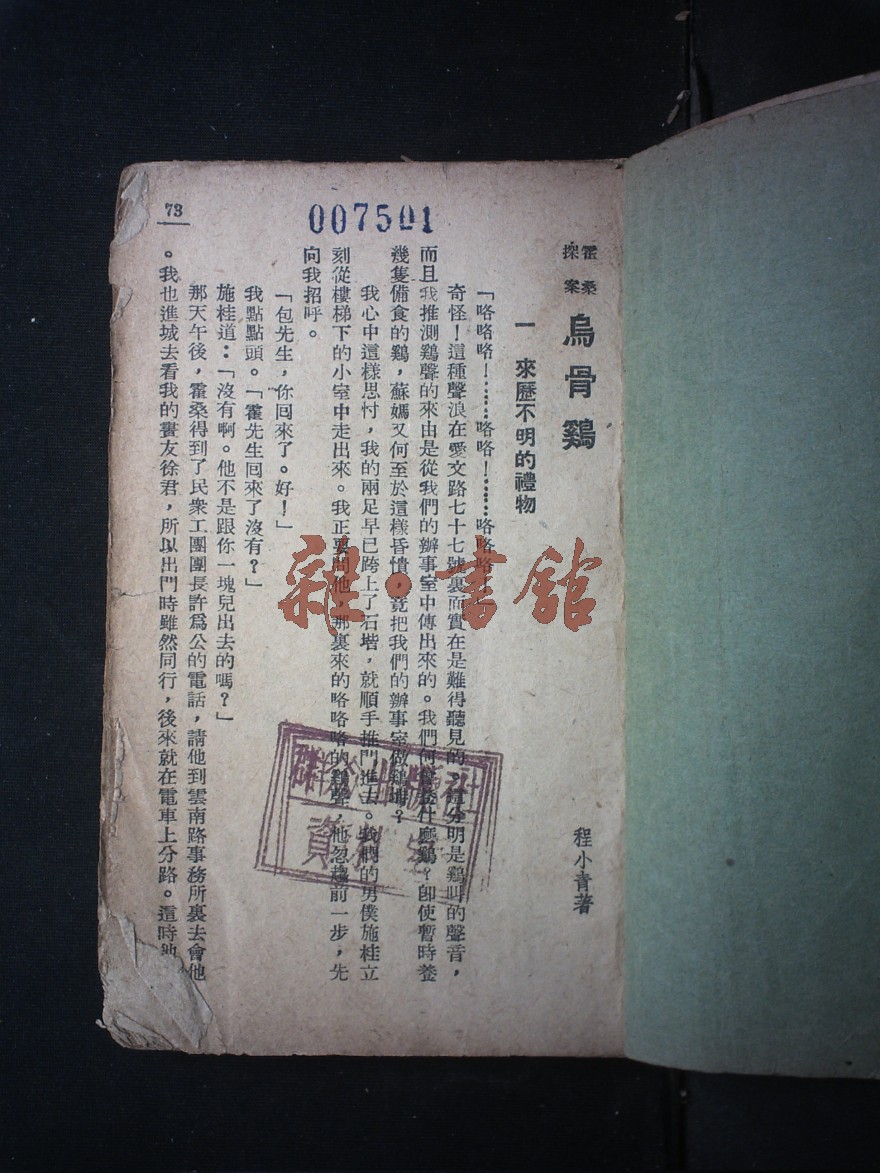 霍桑
探案
烏骨鷄
程小青著
一　來歷不明的禮物
「咯咯咯！……咯咯！……咯咯咯！」
奇怪！這種聲浪在愛文路七十七號裏面實在是難得聽見的。這分明是鷄叫的聲音，
而且我推測鷄聲的來由是從我們的辦事室中傳出來的。我們何嘗養什麼鷄？卽使暫時養
幾隻備食的鷄，蘇媽又何至於這樣昏憒，竟把我們的辦事室做鷄塒？
我心中這樣思忖，我的兩足早已跨上了石堦，就順手推門進去。我們的男僕施桂立
刻從樓梯下的小室中走出來。我正要問他，那裏來的咯咯咯的鷄聲，他忽越前一步，先
向我招呼。
「包先生，你囘來了。好！」
我點點頭。「霍先生囘來了沒有？」
施桂道：「沒有啊。他不是跟你一塊兒出去的嗎？」
那天午後，霍桑得到了民衆工團團長許爲公的電話，請他到雲南路事務所裏去會他
。我也進城去看我的畫友徐君，所以出門時雖然同行，後來就在電車上分路。這時他
73
007501
雜·書館
群众出版社
資料室